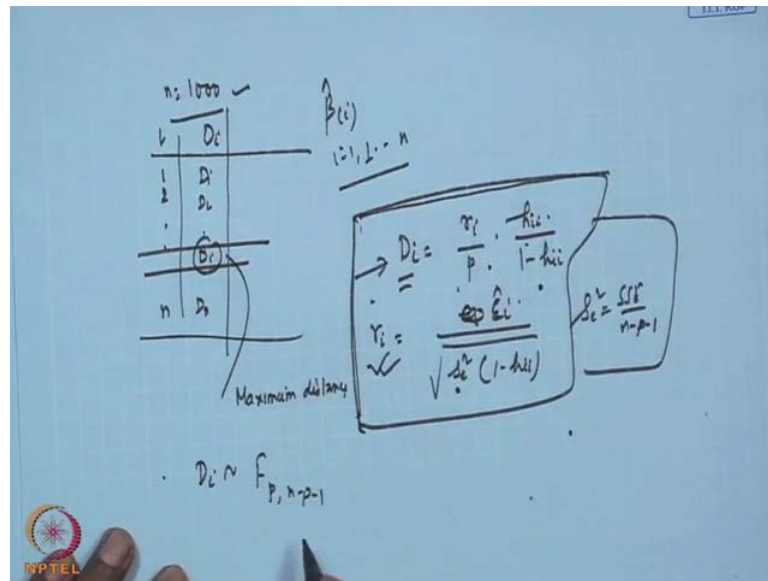 I.I.T. KGP
n = 1000 ✓
i Di
1 Di
2 D2
.
i Di
n Dn
β̂(i)
i=1, 2 .. n
→ Di = ri/p . hii/1-hii
ri = ε̂i/√se² (1-hii)
se² = SSE/n-p-1
Maximum distance
Di ~ F p, n-p-1
NPTEL